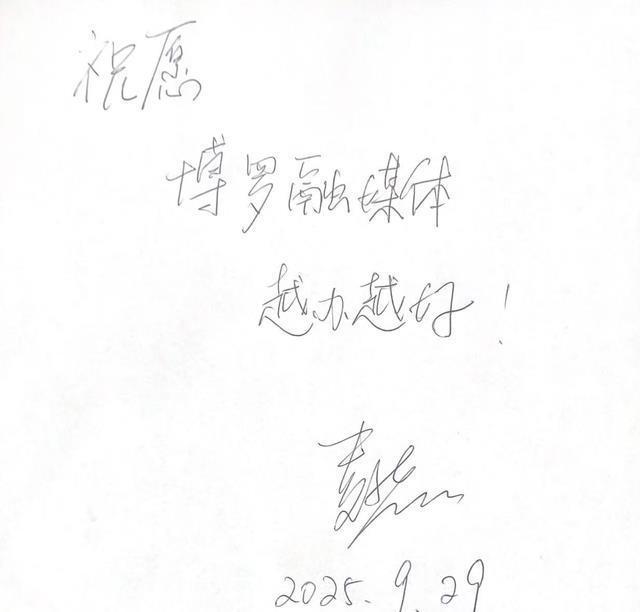 祝愿
博罗融媒体
越办越好！
2025.9.29